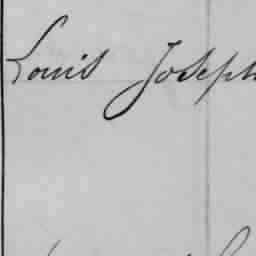 Louis Joseph